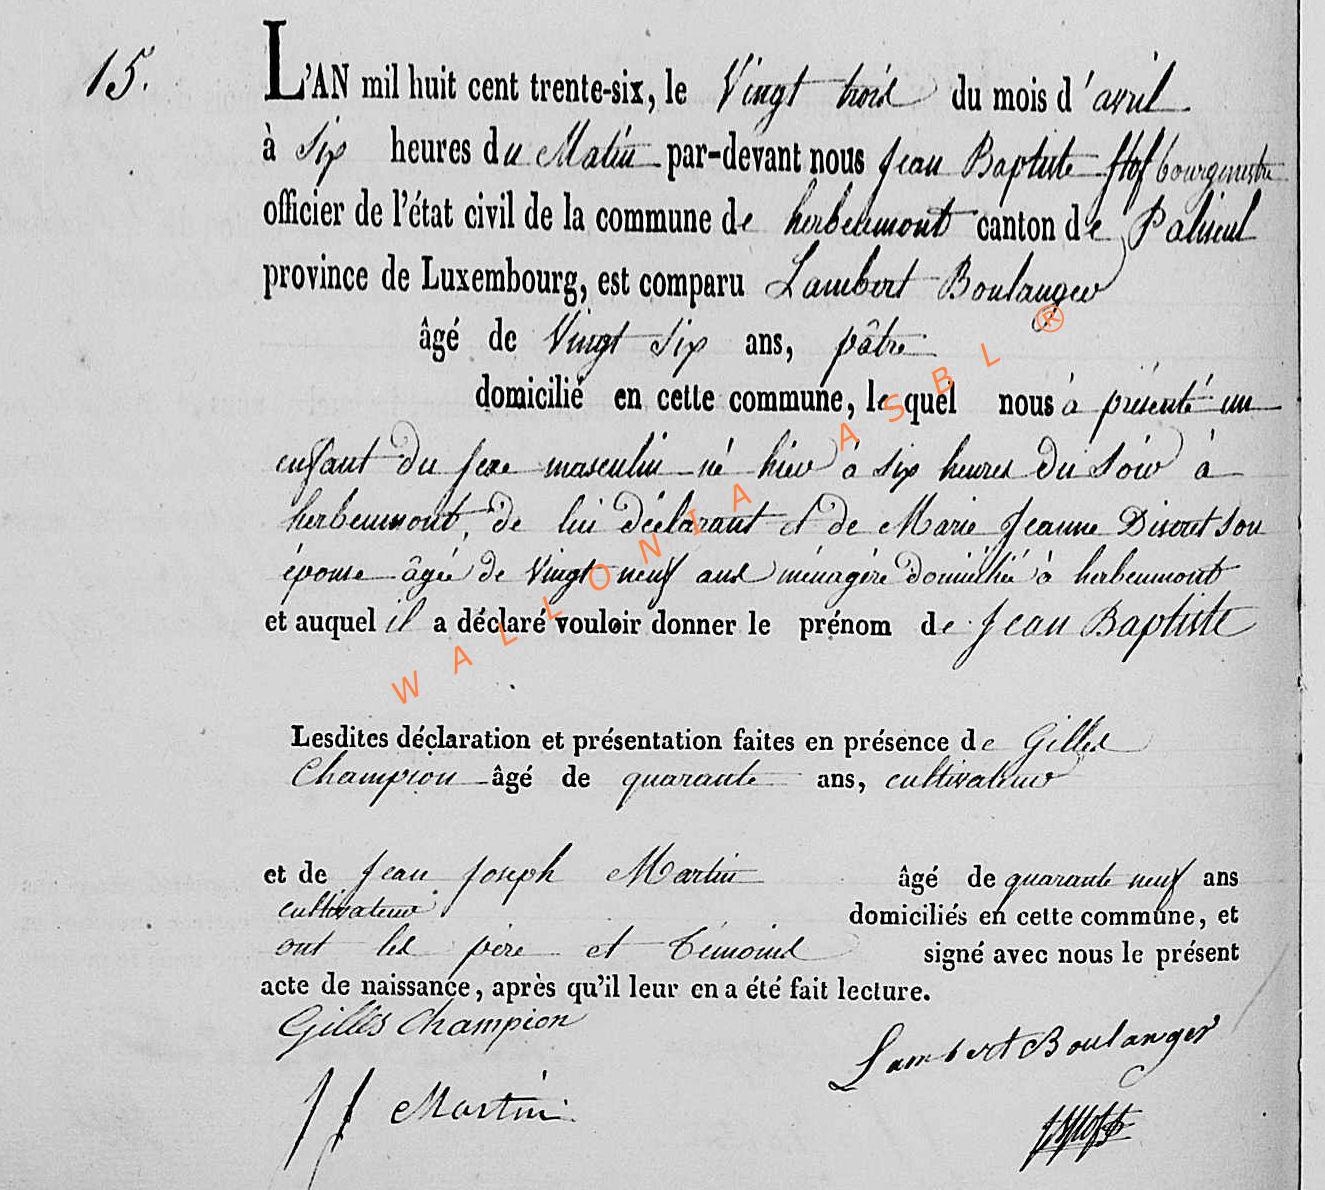 15.
L'AN mil huit cent trente-six, le Vingt trois du mois d'avril
à Six heures du Matin par-devant nous Jean Baptiste Hof bourgmestre
officier de l'état civil de la commune de herbeumont canton de Paliseul
province de Luxembourg, est comparu Lambert Boulanger
âgé de Vingt Six ans, pâtre
domicilié en cette commune, le quel nous à présenté un
enfant du sexe masculin né hier à six heures du Soir à
herbeumont, de lui déclarant et de Marie Jeanne son
épouse âgée de Vingt neuf ans ménagère domiciliée à herbeumont
et auquel il a déclaré vouloir donner le prénom de Jean Baptiste
Lesdites déclaration et présentation faites en présence de Gilles
Champion âgé de quarante ans, cultivateur
et de Jean Joseph Martin âgé de quarante neuf ans
cultivateur domiciliés en cette commune, et
ont les père et témoins signé avec nous le présent
acte de naissance, après qu'il leur en a été fait lecture.
Gilles Champion
Lambert Boulanger
JJ Martin
WALLONIA ASBL ®